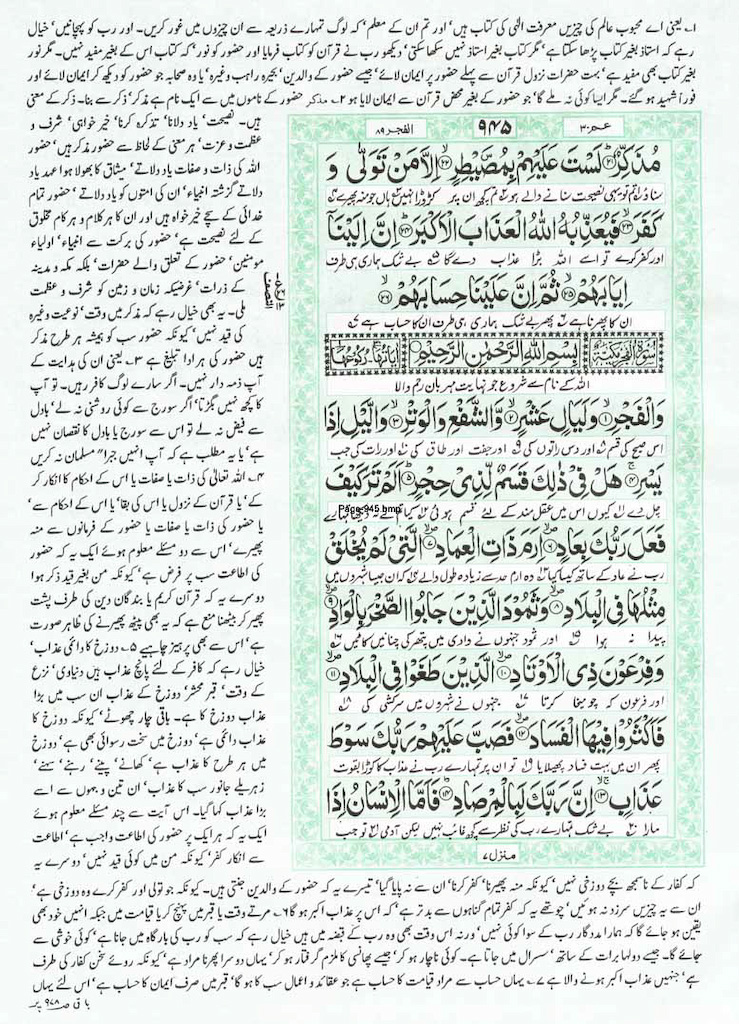 ۱۔ یعنی اے محبوب عالم کی چیزیں معرفت الٰہی کی کتاب ہیں‘ اور تم ان کے معلم‘ کہ لوگ تمہارے ذریعہ سے ان چیزوں میں غور کریں۔ اور رب کو پہچانیں‘ خیال
رہے کہ استاذ بغیر کتاب پڑھا سکتا ہے‘ مگر کتاب بغیر استاذ نہیں سکھا سکتی‘ دیکھو رب نے قرآن کو کتاب فرمایا اور حضور کو نور‘ کہ کتاب اس کے بغیر مفید نہیں۔ مگر نور
بغیر کتاب بھی مفید ہے‘ بہت حضرات نزول قرآن سے پہلے حضور پر ایمان لائے‘ جیسے حضور کے والدین‘ بحیرہ راہب وغیرہ‘ یا وہ صحابہ جو حضور کو دیکھ کر ایمان لائے اور
فوراً شہید ہو گئے۔ مگر ایسا کوئی نہ ملے گا‘ جو حضور کے بغیر محض قرآن سے ایمان لایا ہو ۲۔ مذکر حضور کے ناموں میں سے ایک نام ہے مذکر‘ ذکر سے بنا۔ ذکر کے معنی
ہیں۔ نصیحت‘ یاد دلانا‘ تذکرہ کرنا‘ خیر خواہی‘ شرف و
عظمت و عزت‘ ہر معنی کے لحاظ سے حضور مذکر ہیں‘ حضور
اللہ کی ذات و صفات یاد دلاتے‘ میثاق کا بھولا ہوا عہد یاد
دلاتے گزشتہ انبیاء‘ ان کی امتوں کو یاد دلاتے‘ حضور تمام
خدائی کے سچے خیر خواہ ہیں اور ان کا ہر کلام و ہر کام مخلوق
کے لئے نصیحت ہے‘ حضور کی برکت سے انبیاء‘ اولیاء
مومنین‘ حضور کے تعلق والے حضرات‘ بلکہ مکہ و مدینہ
کے ذرات‘ غرضیکہ زمان و زمین کو شرف و عظمت
ملی۔ یہ بھی خیال رہے کہ مذکر میں وقت‘ نوعیت وغیرہ
کی قید نہیں‘ کیونکہ حضور سب کو ہمیشہ ہر طرح مذکر
ہیں حضور کی ہر ادا تبلیغ ہے ۳۔ یعنی ان کی ہدایت کے
آپ ذمہ دار نہیں۔ اگر سارے لوگ کافر رہیں۔ تو آپ
کا کچھ نہیں بگڑتا‘ اگر سورج سے کوئی روشنی نہ لے‘ بادل
سے فیض نہ لے تو اس سے سورج یا بادل کا نقصان نہیں
ہے‘ یا یہ مطلب ہے کہ آپ انہیں جبراً مسلمان نہ کریں
۴۔ اللہ تعالیٰ کی ذات یا صفات یا اس کے احکام کا انکار کر
کے‘ یا قرآن کے نزول یا اس کی بقا‘ یا اس کے احکام سے‘
یا حضور کی ذات یا صفات یا حضور کے فرمانوں سے منہ
پھیرے‘ اس سے دو مسئلے معلوم ہوئے ایک یہ کہ حضور
کی اطاعت سب پر فرض ہے‘ کیونکہ من بغیر قید ذکر ہوا
دوسرے یہ کہ قرآن کریم یا بندگان دین کی طرف پشت
پھیر کر بیٹھنا منع ہے کہ یہ بھی پیٹھ پھیرنے کی ظاہر صورت
ہے‘ اس سے بھی پرہیز چاہیے ۵۔ دوزخ کا دائمی عذاب‘
خیال رہے کہ کافر کے لئے پانچ عذاب ہیں دنیاوی‘ نزع
کے وقت‘ قبر محشر‘ دوزخ کے عذاب ان سب میں بڑا
عذاب دوزخ کا ہے۔ باقی چار چھوٹے‘ کیونکہ دوزخ کا
عذاب دائمی ہے‘ دوزخ میں سخت رسوائی بھی ہے‘ دوزخ
میں ہر طرح کا عذاب ہے‘ کھانے‘ پینے‘ رہنے‘ سہنے‘
زہریلے جانور سب کا عذاب‘ ان تین و جہوں سے اسے
بڑا عذاب کہا گیا۔ اس آیت سے چند مسئلے معلوم ہوئے
ایک یہ کہ ہر ایک پر حضور کی اطاعت واجب ہے‘ اطاعت
سے انکار کفر‘ کیونکہ من میں کوئی قید نہیں‘ دوسرے یہ
عمّ ۳۰
۹۴۵
الفجر ۸۹
مُذَكِّرٌ ۲۱ لَسْتَ عَلَيْهِمْ بِمُصَۜيْطِرٍ ۲۲ اِلَّا مَنْ تَوَلّٰى وَ
كَفَرَ ۲۳ فَيُعَذِّبُهُ اللّٰهُ الْعَذَابَ الْاَكْبَرَ ۲۴ اِنَّ اِلَيْنَاۤ
اور کفر کرے تو اسے اللہ بڑا عذاب دے گا بے شک ہماری ہی طرف
اِيَابَهُمْ ۲۵ ثُمَّ اِنَّ عَلَيْنَا حِسَابَهُمْ ۲۶
ان کا پھرنا ہے پھر بے شک ہماری ہی طرف ان کا حساب ہے
سُوْرَةُ الْفَجْرِ مَكِّيَّةٌ بِسْمِ اللّٰهِ الرَّحْمٰنِ الرَّحِيْمِ
اللہ کے نام سے شروع جو نہایت مہربان رحم والا
وَالْفَجْرِ ۱ وَلَيَالٍ عَشْرٍ ۲ وَّالشَّفْعِ وَالْوَتْرِ ۳ وَالَّيْلِ اِذَا
اس صبح کی قسم اور دس راتوں کی اور جفت اور طاق کی اور رات کی جب
يَسْرِ ۴ هَلْ فِيْ ذٰلِكَ قَسَمٌ لِّذِيْ حِجْرٍ ۵ اَلَمْ تَرَ كَيْفَ
چل دے کیوں اس میں عقل مند کے لئے قسم ہوئی کیا تم نے نہ دیکھا تمہارے
Page-945.bmp
فَعَلَ رَبُّكَ بِعَادٍ ۶ اِرَمَ ذَاتِ الْعِمَادِ ۷ الَّتِيْ لَمْ يُخْلَقْ
رب نے عاد کے ساتھ کیسا کیا وہ ارم حد سے زیادہ طول والے کہ ان جیسا شہروں میں
مِثْلُهَا فِي الْبِلَادِ ۸ وَثَمُوْدَ الَّذِيْنَ جَابُوا الصَّخْرَ بِالْوَادِ ۹
پیدا نہ ہوا اور ثمود جنہوں نے وادی میں پتھر کی چٹانیں کاٹیں
وَفِرْعَوْنَ ذِي الْاَوْتَادِ ۱۰ الَّذِيْنَ طَغَوْا فِي الْبِلَادِ ۱۱
اور فرعون کہ چومیخا کرتا جنہوں نے شہروں میں سرکشی کی
فَاَكْثَرُوْا فِيْهَا الْفَسَادَ ۱۲ فَصَبَّ عَلَيْهِمْ رَبُّكَ سَوْطَ
پھر ان میں بہت فساد پھیلایا تو ان پر تمہارے رب نے عذاب کا کوڑا بقوت
عَذَابٍ ۱۳ اِنَّ رَبَّكَ لَبِالْمِرْصَادِ ۱۴ فَاَمَّا الْاِنْسَانُ اِذَا
مارا بے شک تمہارے رب کی نظر سے کچھ غائب نہیں لیکن آدمی تو جب
منزل ۷
کہ کفار کے ناسمجھ بچے دوزخی نہیں‘ کیونکہ منہ پھیرنا‘ کفر کرنا‘ ان سے نہ پایا گیا‘ تیسرے یہ کہ حضور کے والدین جنتی ہیں۔ کیونکہ جو تولی اور کفر کرے وہ دوزخی ہے‘
ان سے یہ چیزیں سرزد نہ ہوئیں‘ چوتھے یہ کہ کفر تمام گناہوں سے بدتر ہے‘ کہ اس پر عذاب اکبر ہو گا ۶۔ مرتے وقت یا قبر میں پہنچ کر یا قیامت میں جبکہ انہیں خود بھی
یقین ہو جائے گا کہ ہمارا مددگار رب کے سوا کوئی نہیں‘ ورنہ اس وقت بھی وہ رب کے قبضہ میں ہیں خیال رہے کہ سب کو رب کی بارگاہ میں جانا ہے‘ کوئی خوشی سے
جائے گا۔ جیسے دولہا برات کے ساتھ‘ سسرال میں جاتا ہے۔ کوئی ناچار ہو کر‘ جیسے پھانسی کا ملزم گرفتار ہو کر‘ یہاں دوسرا پھرنا مراد ہے‘ کیونکہ روئے سخن کفار کی طرف
ہے‘ جنہیں عذاب اکبر ہونے والا ہے ۷۔ یہاں حساب سے مراد قیامت کا حساب ہے جو عقائد و اعمال سب کا ہو گا‘ قبر میں صرف ایمان کا حساب ہے‘ اس لئے یہاں
باقی صـ ۹۷۸ پر